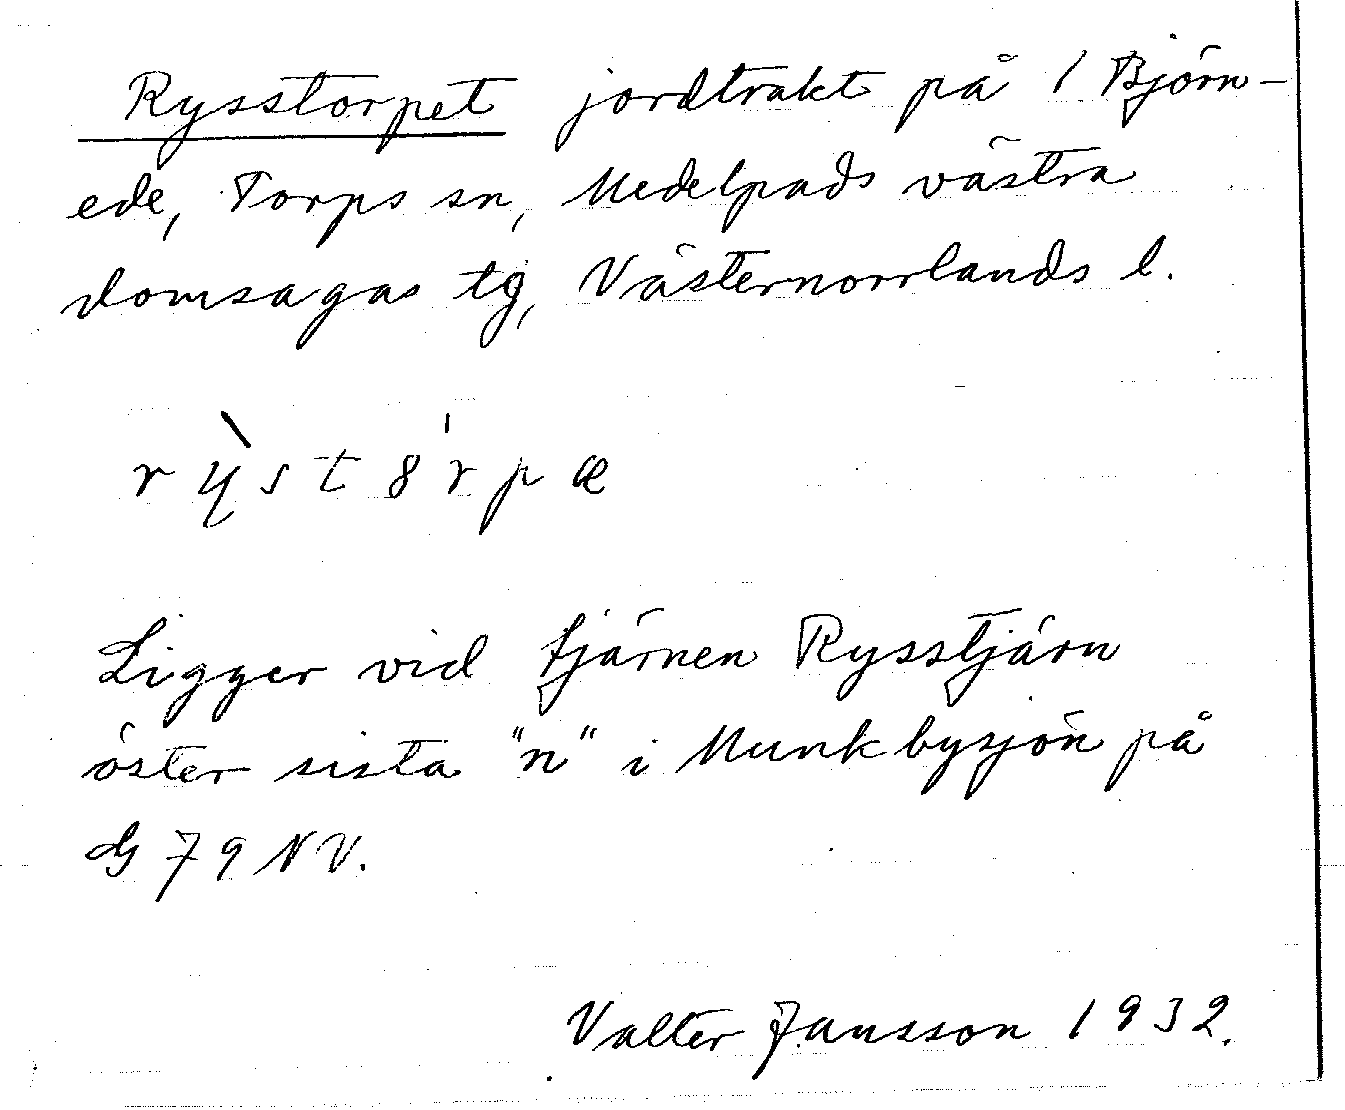 Rysstorpet jordtrakt på 1 Björn-
ede, Torps sn, Medelpads västra
domsagas tg, Västernorrlands l.
rỳst8ŕpæ
Ligger vid tjärnen Rysstjärn
öster sista "n" i Munkbysjön på
G 79 NV.
Valter Jansson 1932.